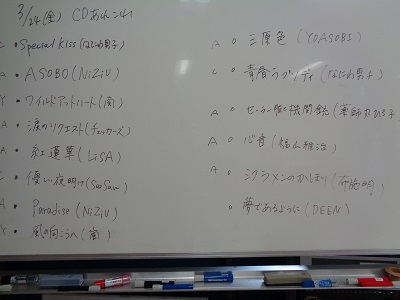 3/24(金) CDあれこれ
C • Special Kiss(なにわ男子)
A • ASOBO(NiziU)
Y • ワイルドアットハート(嵐)
A • 涙のリクエスト(チェッカーズ)
A • 紅蓮華(LiSA)
C • 優しい夜明け(See-Saw)
A • Paradise(NiziU)
Y • 風の向こうへ(嵐)
A • 三原色(YOASOBI)
C • 青春ラプソディ(なにわ男子)
A • セーラー服と機関銃(薬師丸ひろ子)
A • 心音(福山雅治)
A • シクラメンのかほり(布施明)
• 夢であるように(DEEN)